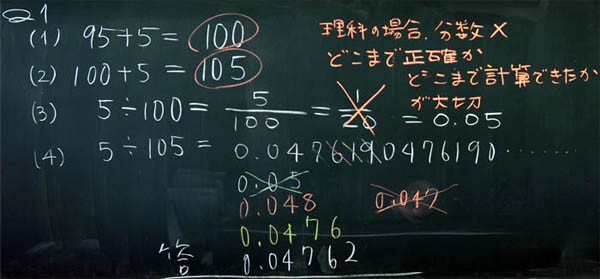 Q1
(1) 95+5=100
(2) 100+5=105
(3) 5÷100=5/100=1/20=0.05
(4) 5÷105=0.0476190476190........
0.05
0.048
0.0476
答 0.04762
0.047
理科の場合、分数×
どこまで正確か
どこまで計算できたか
が大切